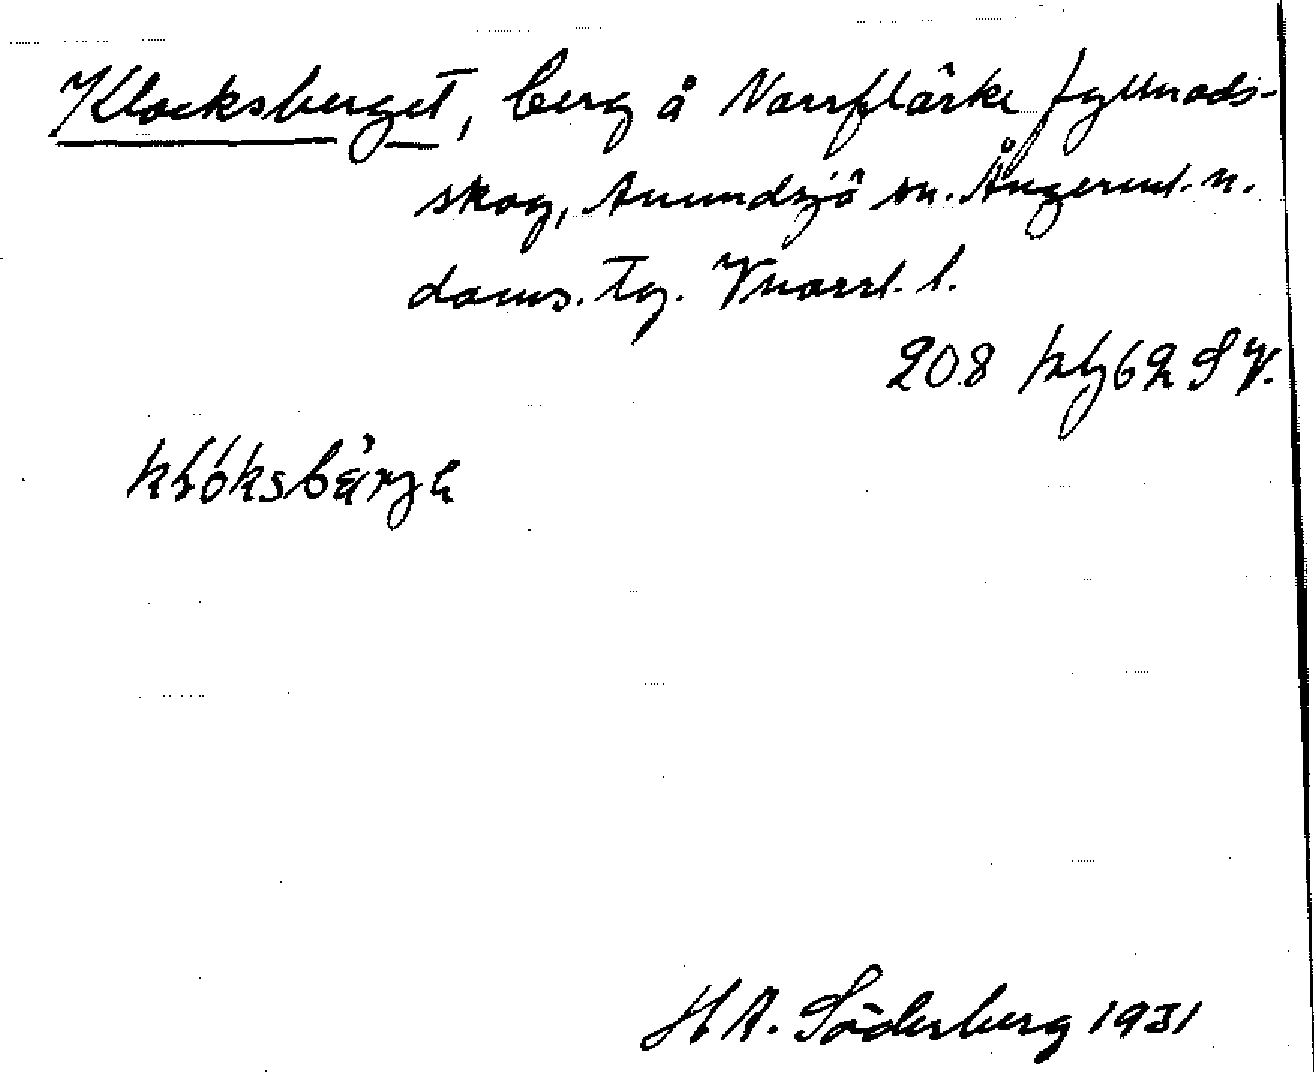 Klocksberget, berg å Norrflärke fyllnads-
skog, Anundsjö sn. Ångerml. n.
doms. tg. Vnorrl. l.
208 kbg 62 S V.
klóksbärjɛ
H A. Söderberg 1931